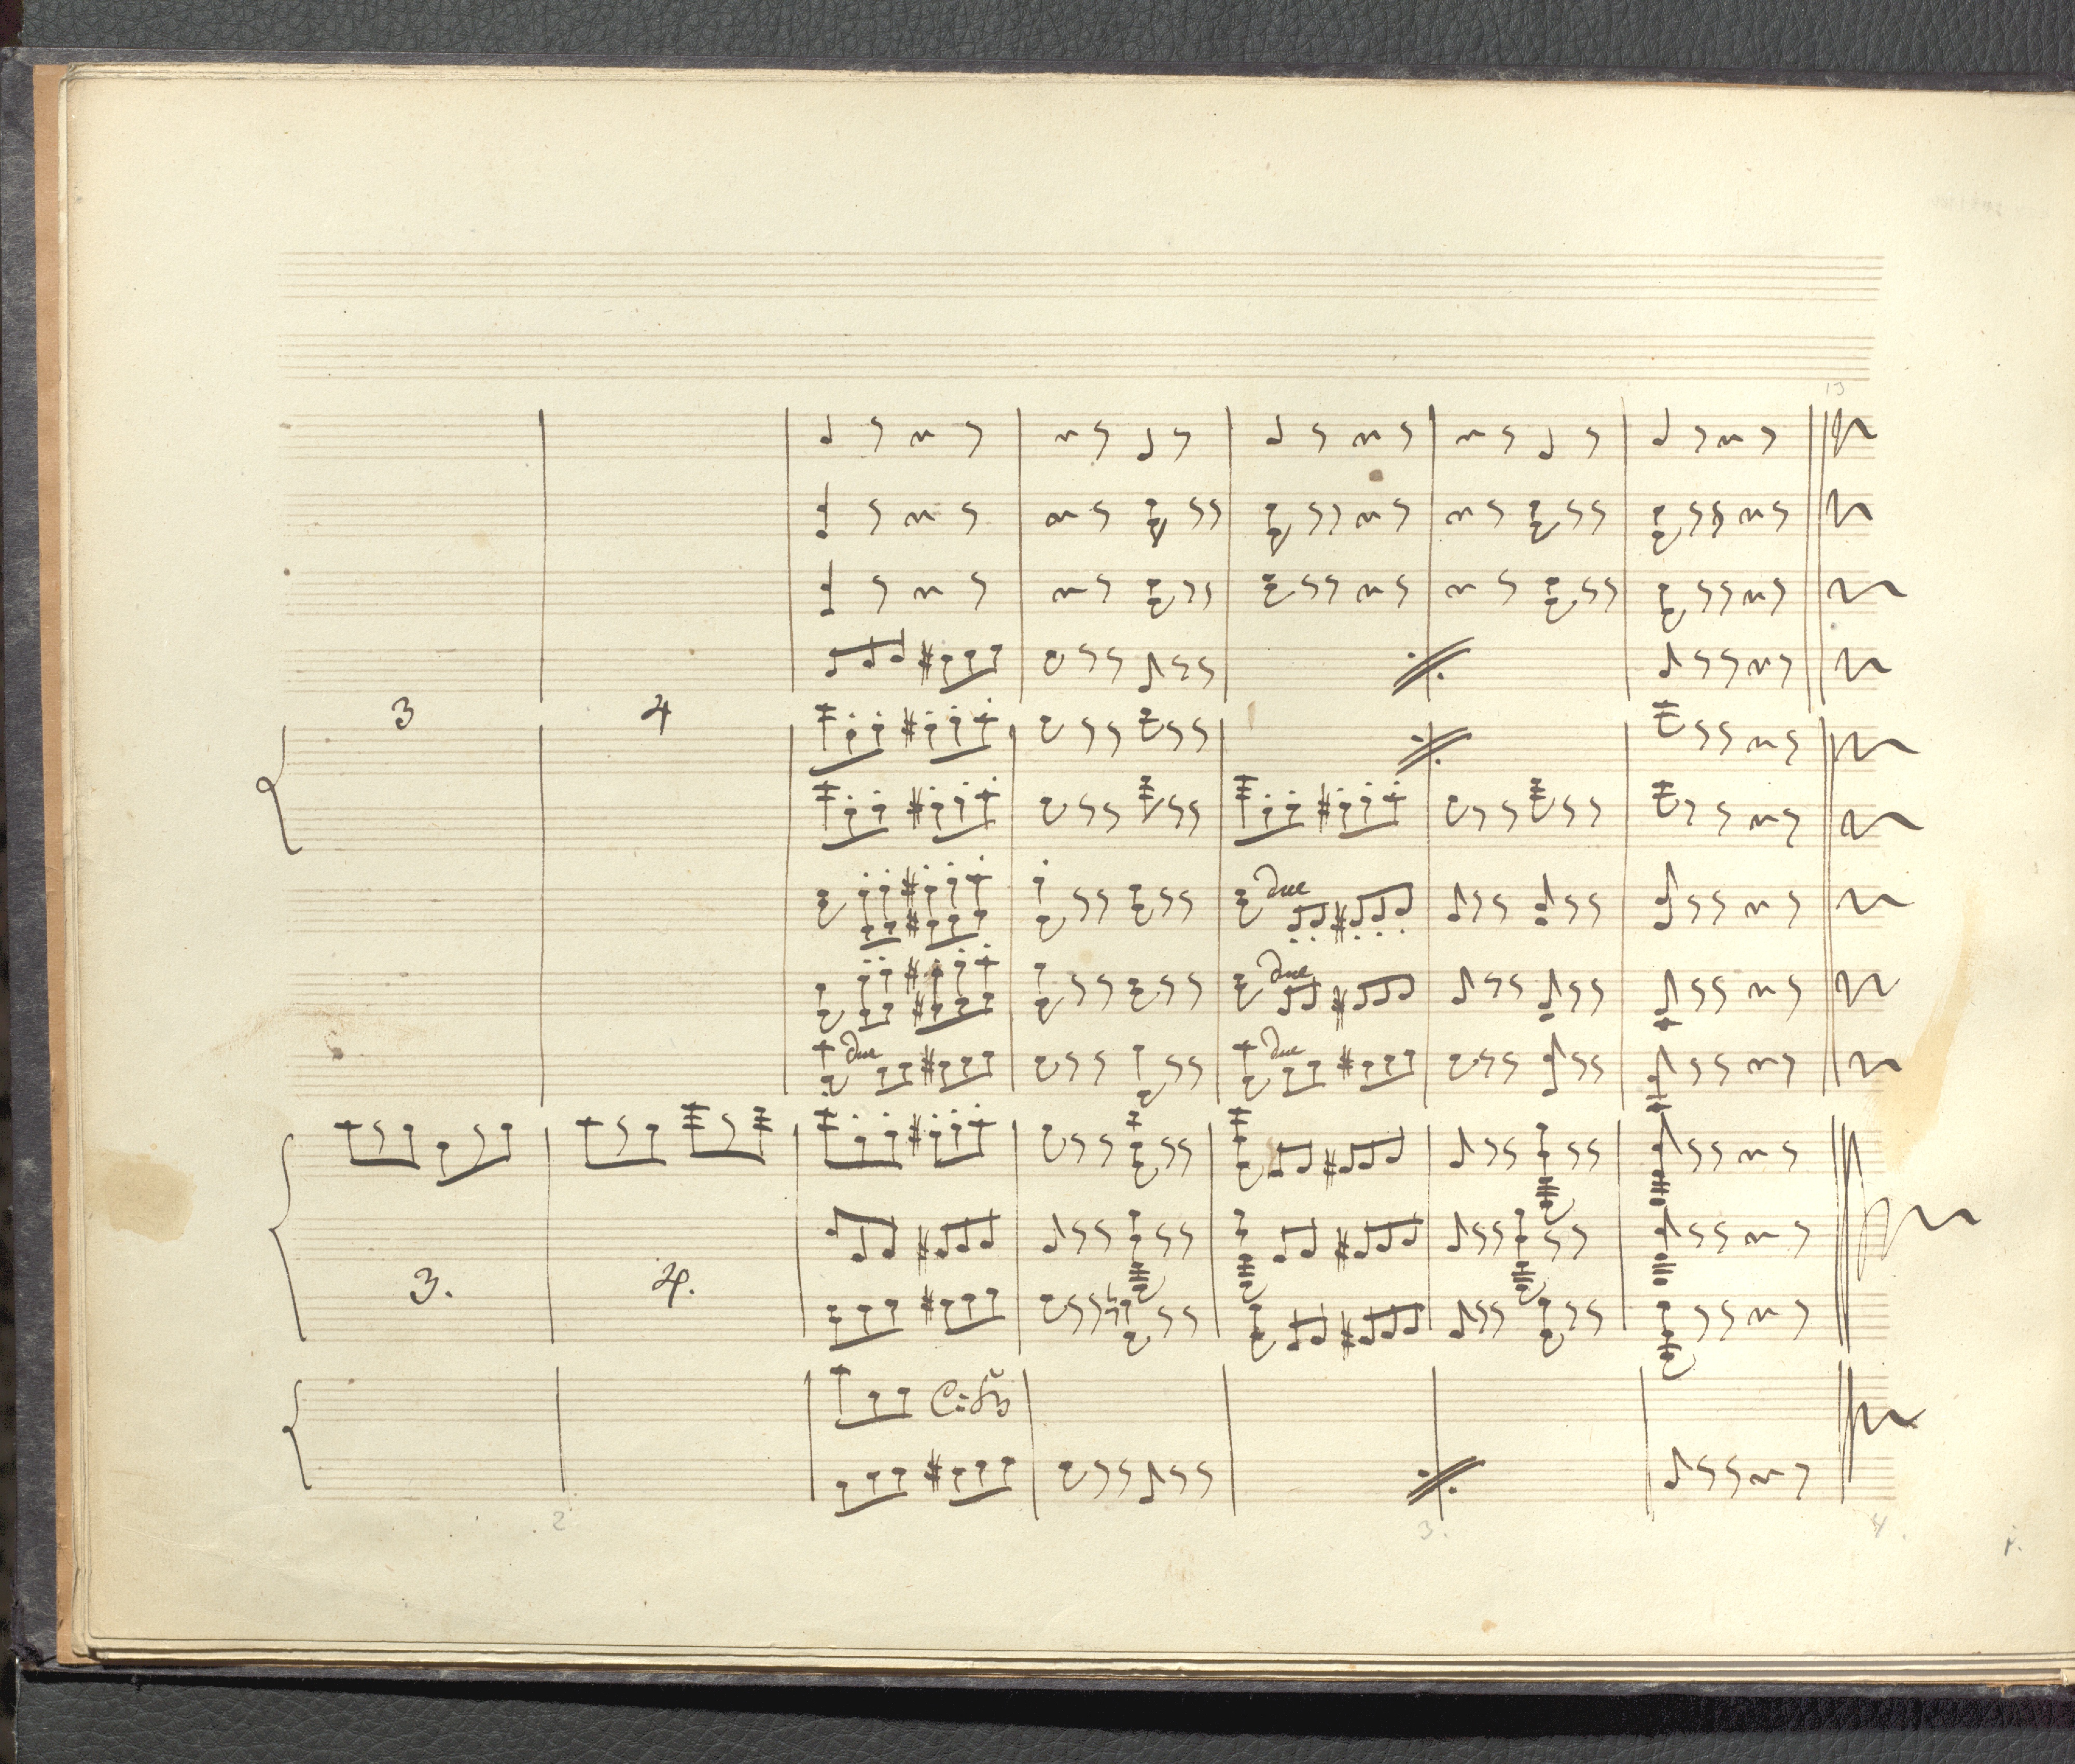 13
3 4
due due
due
due due
3. 4.
2 3. 4.